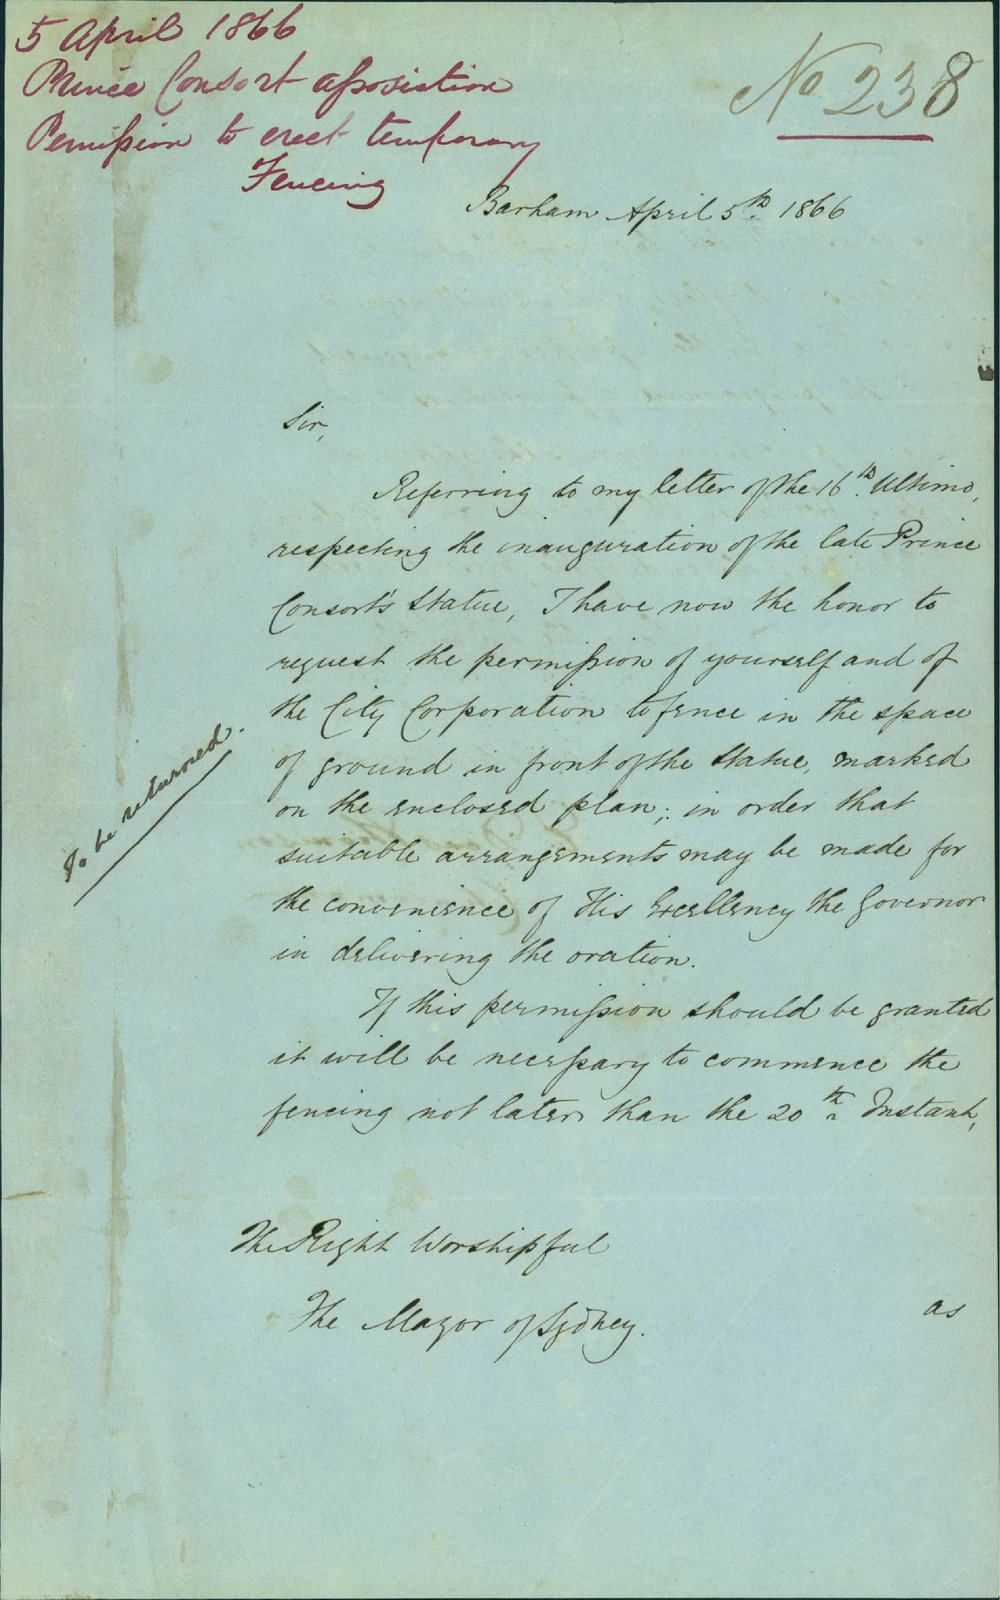 5 April 1866
Prince Consort association
Permission to erect temporary
Fencing
No 238
Barham April 5th. 1866
Sir,
Referring to my letter of the 16th. Ultimo,
respecting the inauguration of the late Prince
Consort's Statue, I have now the honor to
request the permission of yourself and of
the City Corporation to fence in the space
of ground in front of the Statue, marked
on the enclosed plan; in order that
suitable arrangements may be made for
the convenience of His Excellency the Governor
in delivering the oration.
If this permission should be granted
it will be necessary to commence the
fencing not later than the 20th Instant,
To be returned.
The Right Worshipful
The Mayor of Sydney.
as